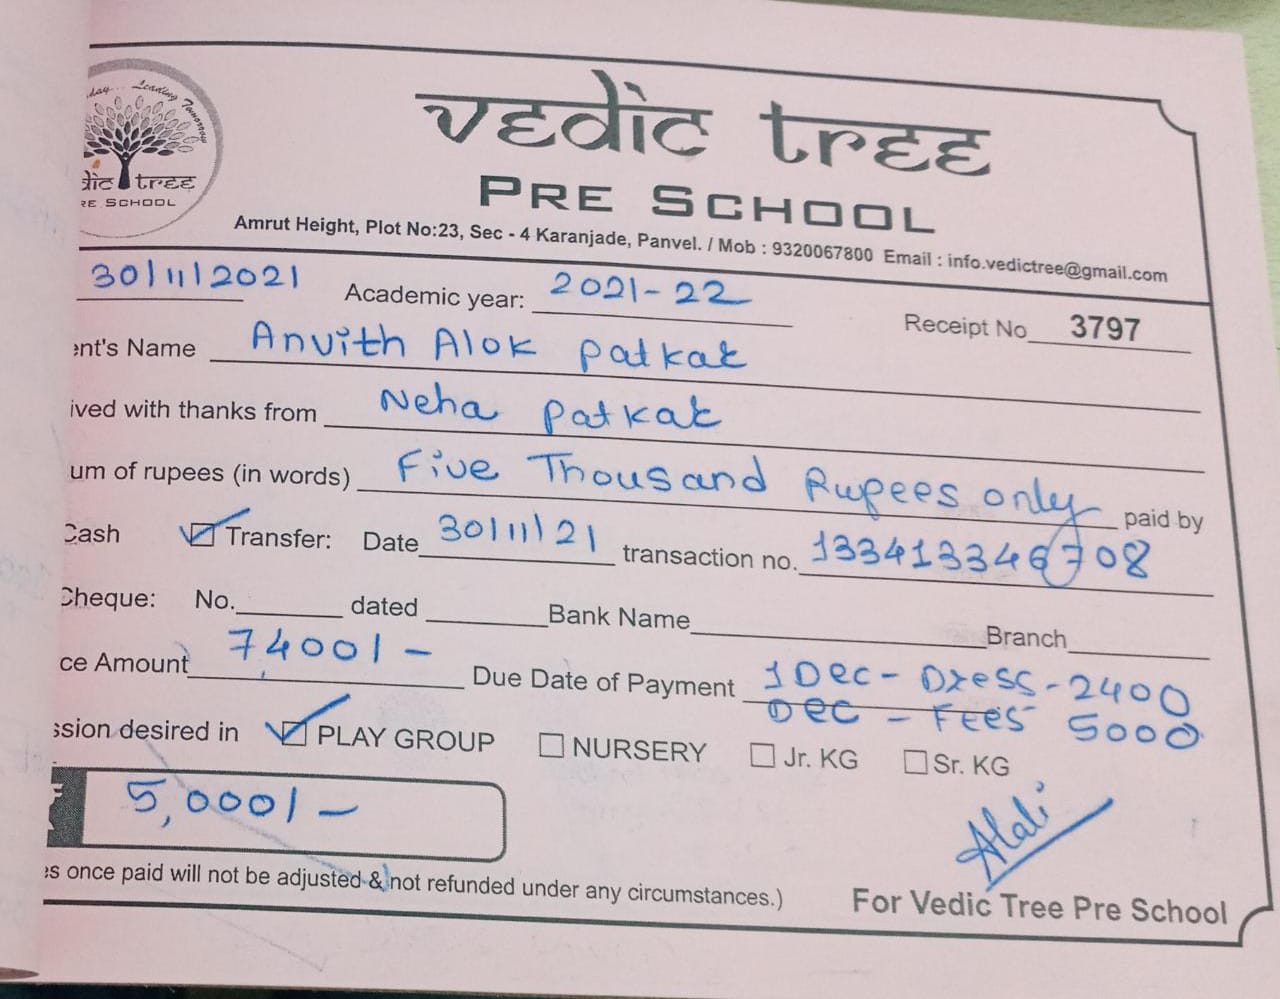 day... Leading Tomorrow
dic tree
RE SCHOOL
vedic tree
PRE SCHOOL
Amrut Height, Plot No:23, Sec - 4 Karanjade, Panvel. / Mob : 9320067800 Email : info.vedictree@gmail.com
30/11/2021 Academic year: 2021-22 Receipt No 3797
ent's Name Anvith Alok Patkar
ived with thanks from Neha Patkar
um of rupees (in words) Five Thousand Rupees only paid by
Cash Transfer: Date 30/11/21 transaction no. 133413346708
Cheque: No. dated Bank Name Branch
ce Amount 7400/- Due Date of Payment 1 Dec - Dress - 2400
Dec - Fees 5000
ssion desired in PLAY GROUP NURSERY Jr. KG Sr. KG
5,000/-
es once paid will not be adjusted & not refunded under any circumstances.)
For Vedic Tree Pre School